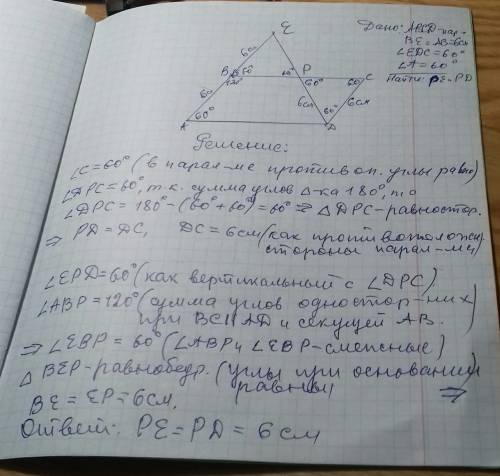 E
Дано: ABCD-пар.
BE=AB=6см
∠EDC=60°
∠A=60°
Найти: PE-PD
6см
B
60°
120°
P
60°
60°
C
60°
6см
6см
A
60°
60°
D
Решение:
∠C=60° (в парал-ме противоп. углы равны)
∠DPC=60°, т.к. сумма углов Δ-ка 180°, то
∠DPC= 180°-(60°+60°)=60° ⇒ ΔDPC-равностор.
⇒ PD=DC, DC=6см (как противополож.
стороны парал-ма)
∠EPD=60° (как вертикальный с ∠DPC)
∠ABP=120° (сумма углов одностор-них
при BC||AD и секущей AB.
⇒ ∠EBP=60° (∠ABP и ∠EBP-смежные)
ΔBEP-равнобедр. (углы при основании
равны) ⇒
BE=EP=6см.
Ответ: PE=PD=6см